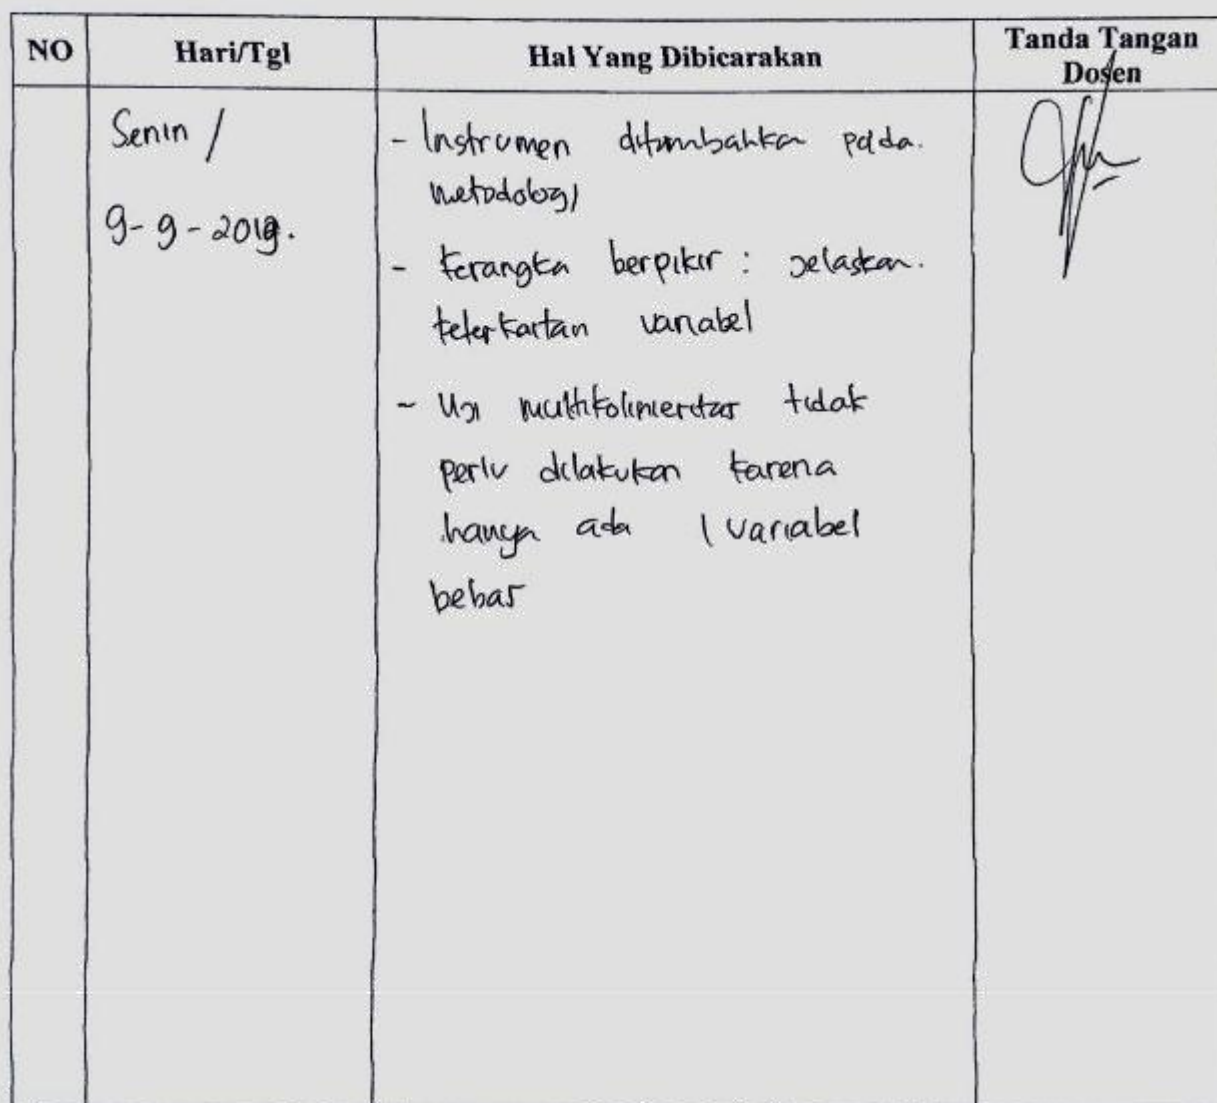 NO Hari/Tgl Hal Yang Dibicarakan Tanda Tangan
Dosen
Senin /
9-9-2019.
- Instrumen ditambahkan pada.
metodologi
- Kerangka berpikir : Jelaskan.
keterkaitan variabel
- Uji multikolinieritas tidak
perlu dilakukan karena
hanya ada 1 variabel
bebas